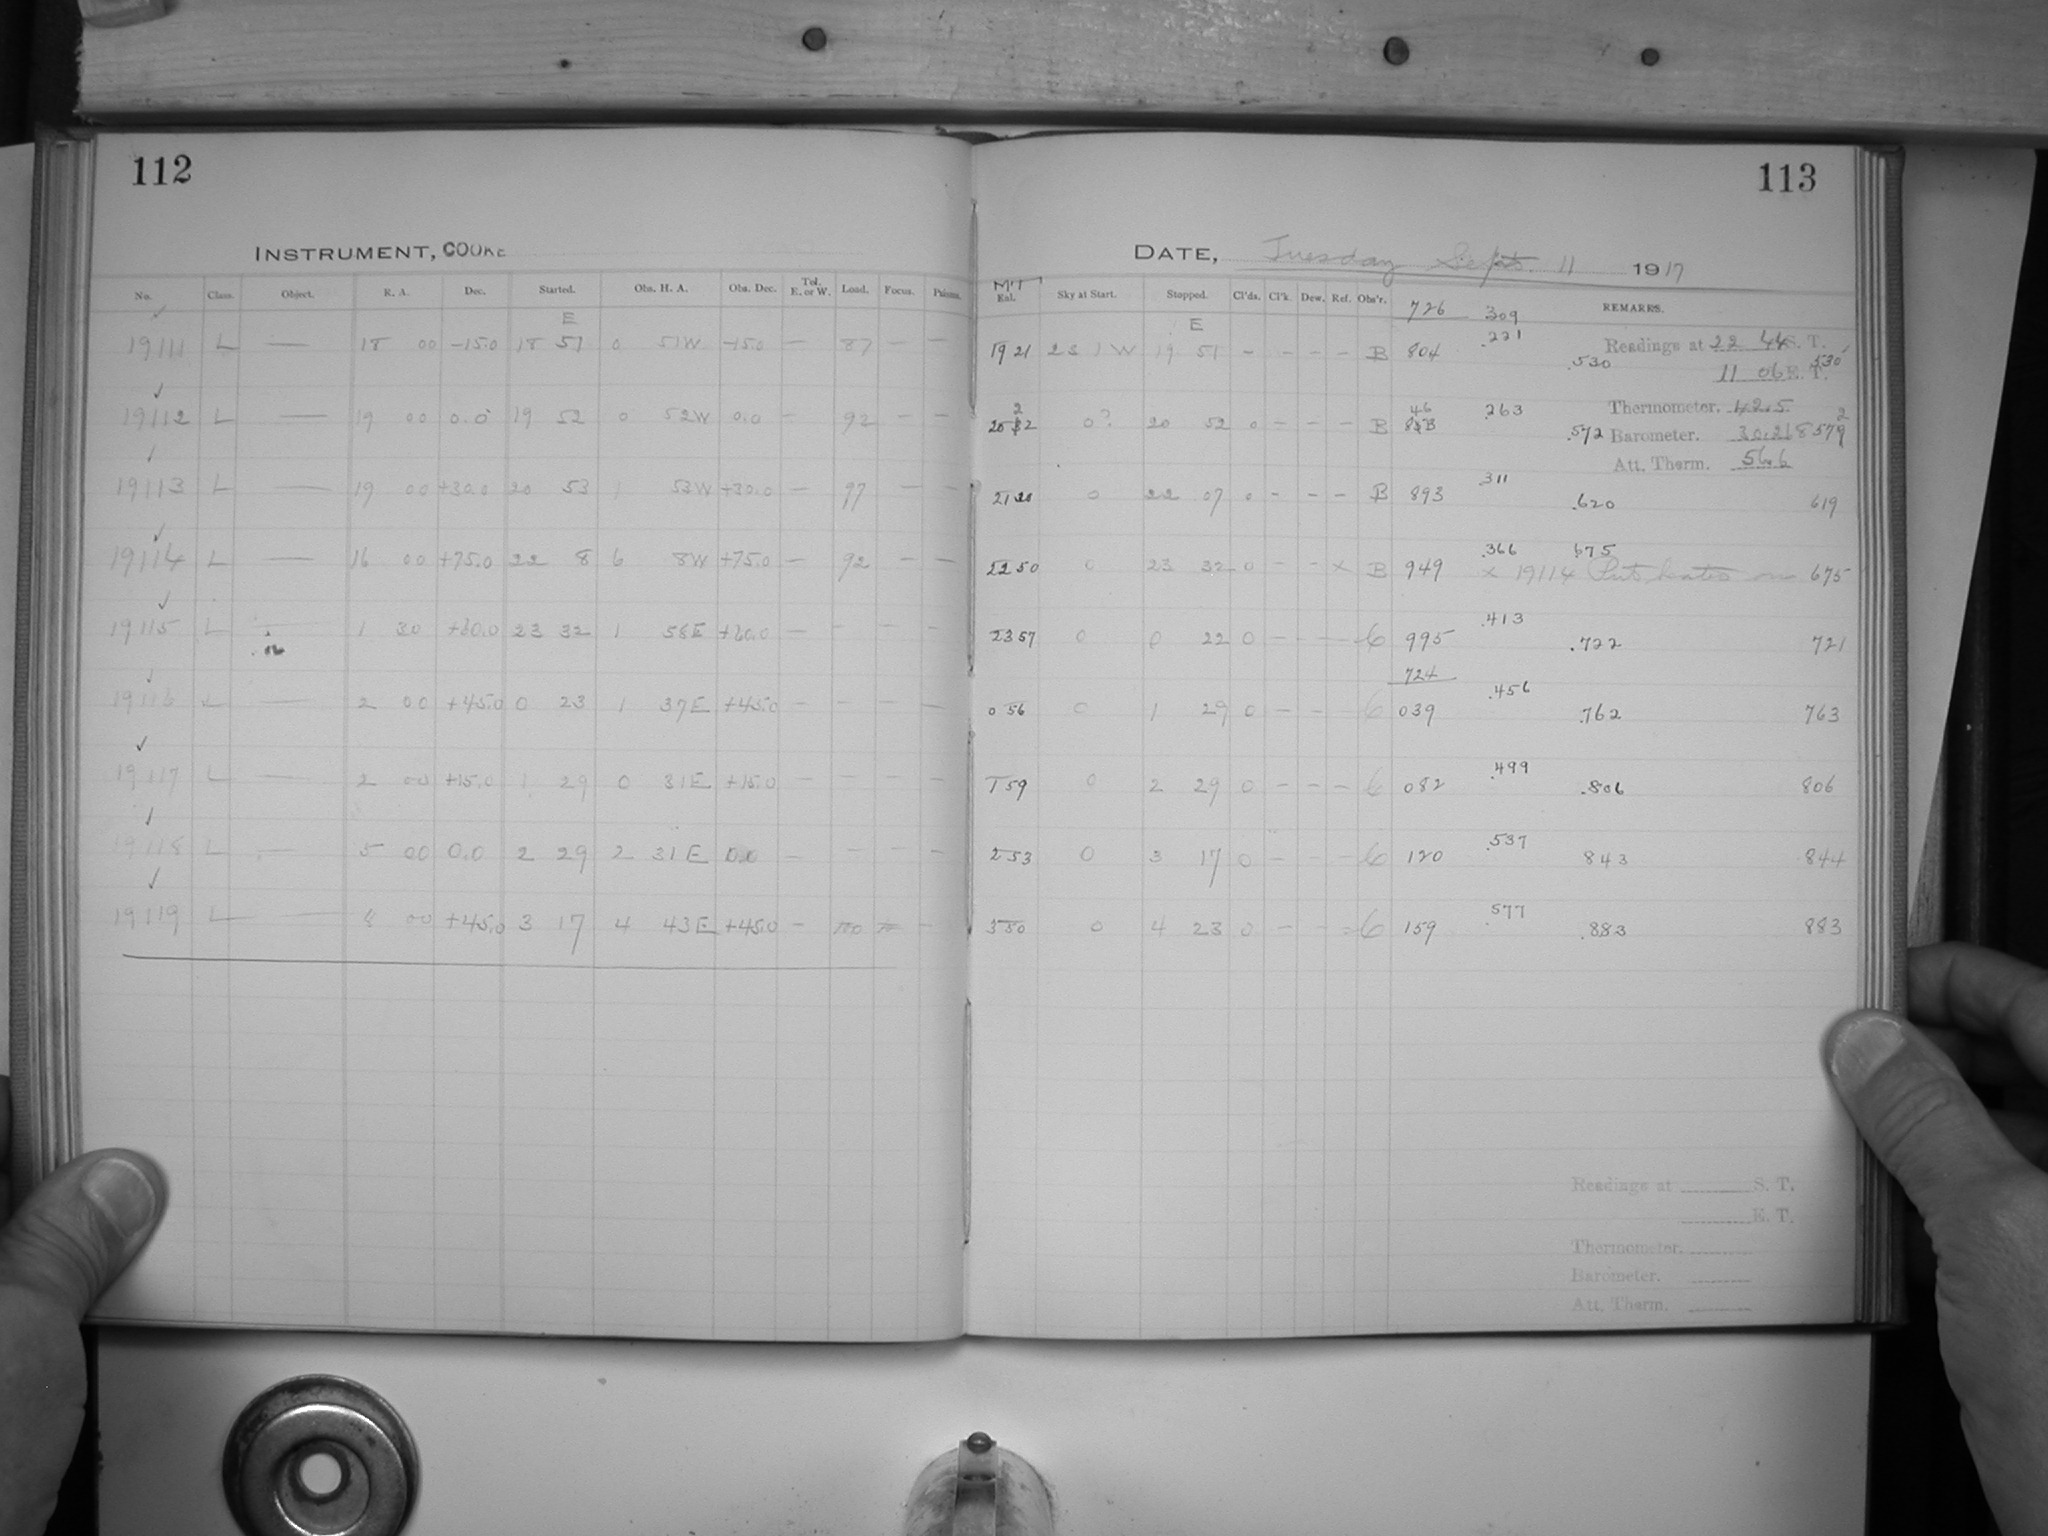 112
INSTRUMENT, COOKE
No. Class. Object. R. A. Dec. Started. Obs. H. A. Obs. Dec. Tel. E. or W. Load. Focus. Prisms.
E
19111 L — 18 00 -15.0 18 51 0 51W -15.0 — 87 — —
19112 L — 19 00 0.0 19 52 0 52W 0.0 — 92 — —
19113 L — 19 00 +30.0 20 53 1 53W +30.0 — 97 — —
19114 L — 16 00 +75.0 22 8 6 8W +75.0 — 92 — —
19115 L — 1 30 +60.0 23 32 1 58E +60.0 — — — —
19116 L — 2 00 +45.0 0 23 1 37E +45.0 — — — —
19117 L — 2 00 +15.0 1 29 0 31E +15.0 — — — —
19118 L — 5 00 0.0 2 29 2 31E 0.0 — — — —
19119 L — 8 00 +45.0 3 17 4 43E +45.0 —
113
DATE, Tuesday Sept. 11 1917
MT
Exl. Sky at Start. Stopped. Cl'ds. Cl'k. Dew. Ref. Obs'r. 726 309 REMARKS.
E
19 21 2 S 1 W 19 51 - - - - B 804 .221 .530 530
Readings at 22 44 S. T.
11 06 E. T.
20 22 0? 20 52 0 - - - B 846 .263 .572 579
Thermometer. 42.5
Barometer. 30.218
Att. Therm. 56.6
21 20 0 22 07 0 - - - B 893 311 .620 619
22 50 0 23 32 0 - - x B 949 .366 675 675
x 19114 Put heater on
23 57 0 0 22 0 - - - 6 995 .413 .722 721
724
0 56 0 1 29 0 - - - 6 039 .456 .762 763
1 59 0 2 29 0 - - - 6 082 .499 .806 806
2 53 0 3 17 0 - - - 6 120 .537 843 844
3 50 0 4 23 0 - - - 6 159 .577 .883 883
Readings at S. T.
E. T.
Thermometer.
Barometer.
Att. Therm.